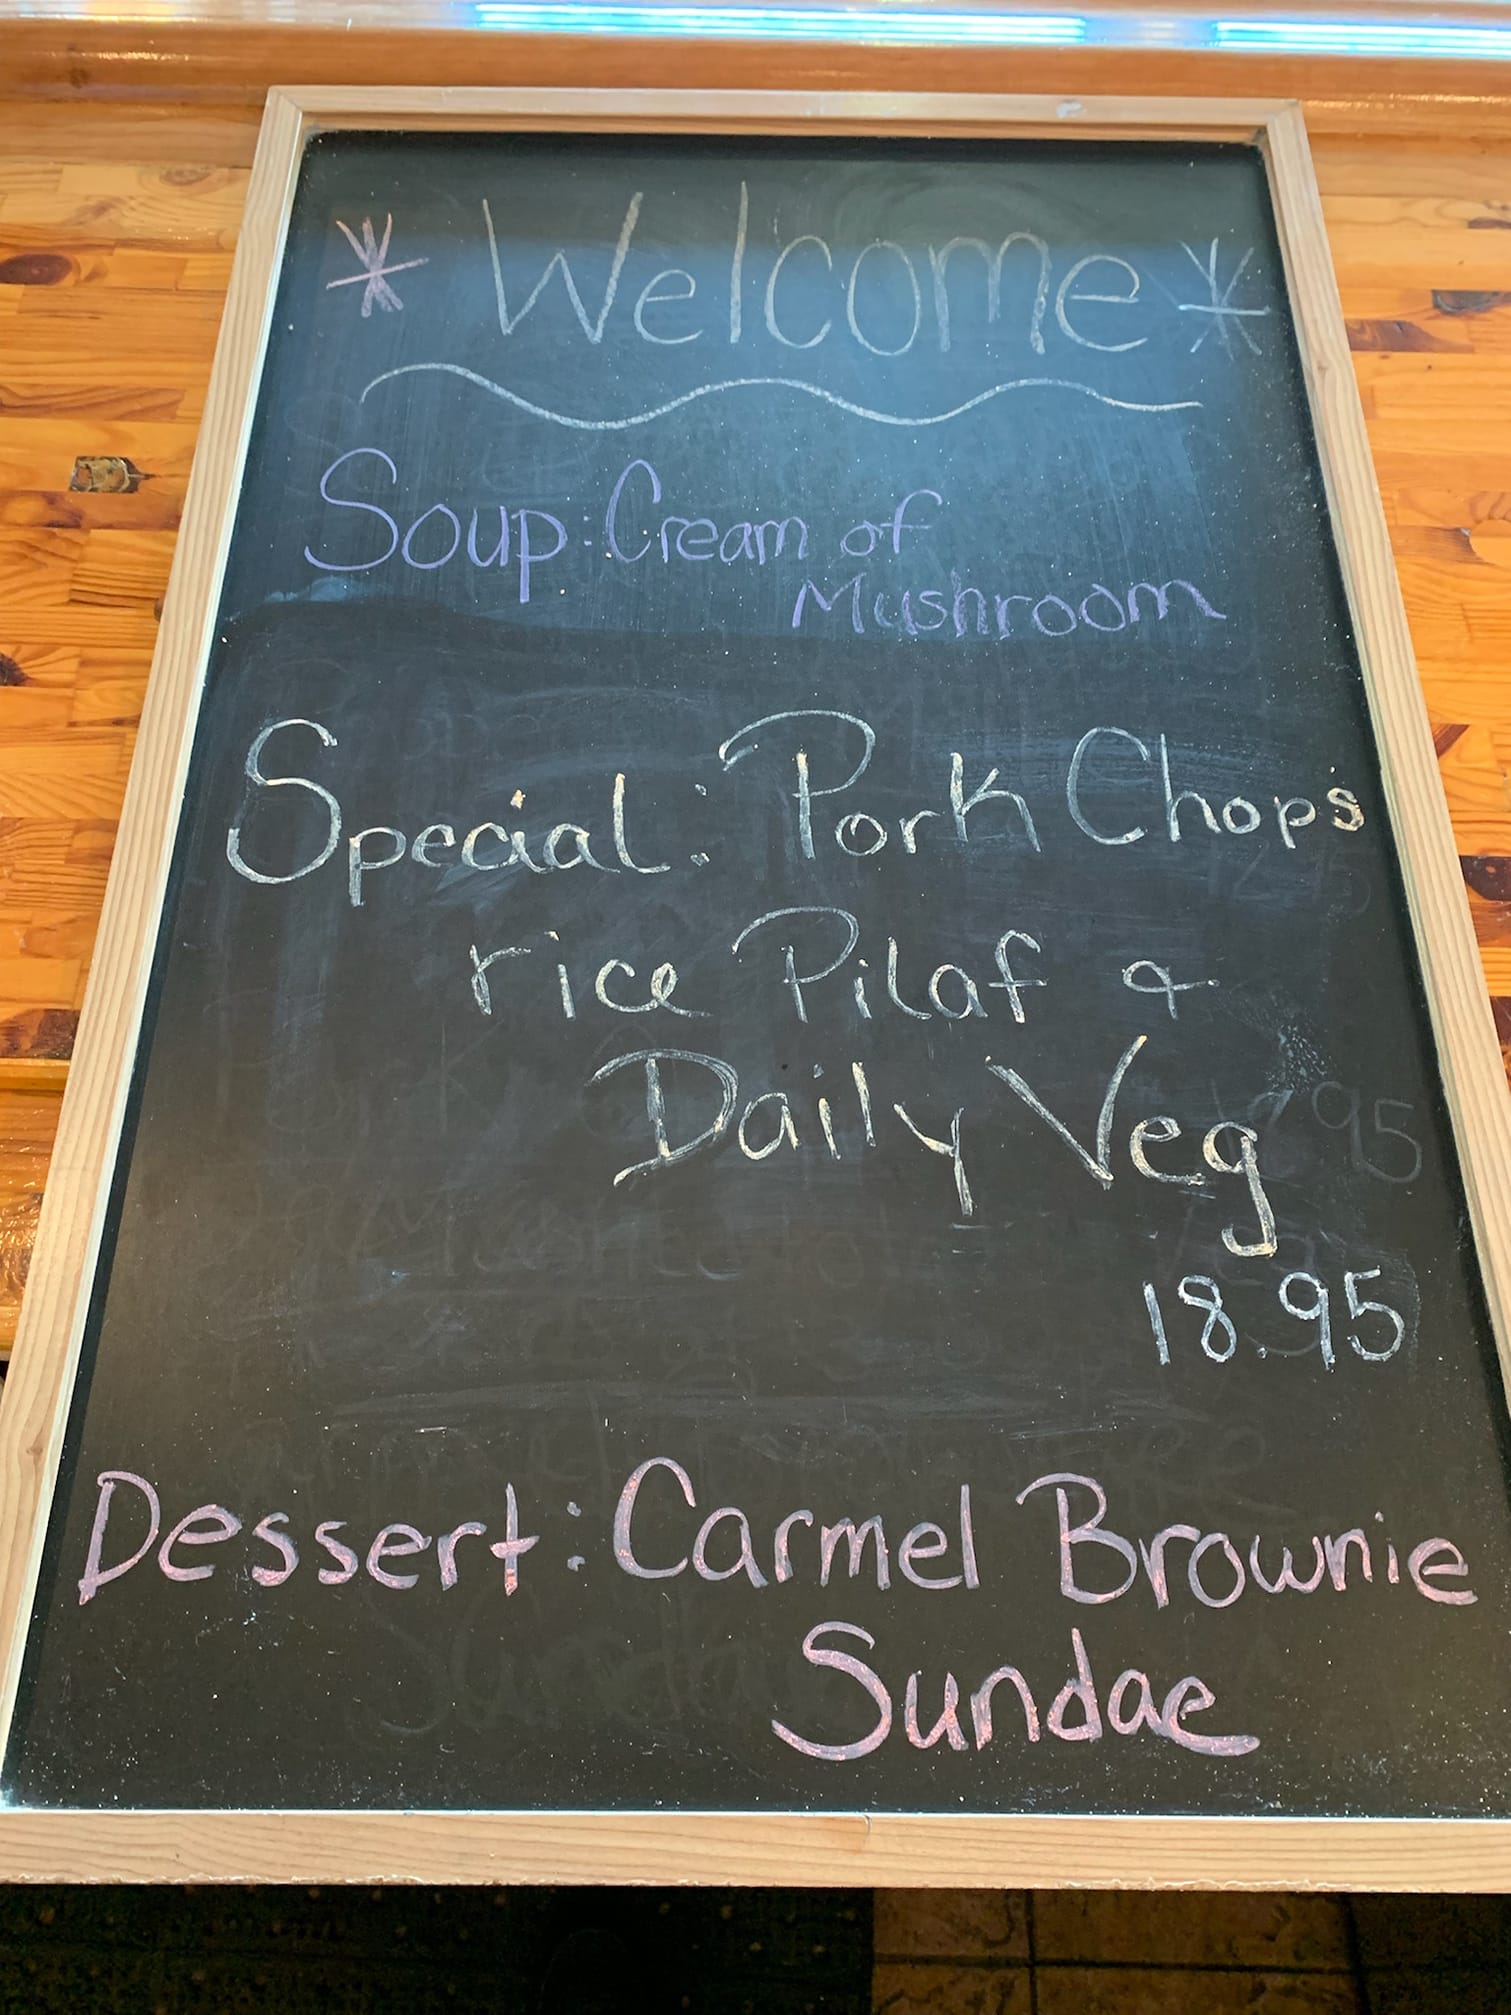 * Welcome *
Soup: Cream of
Mushroom
Special: Pork Chops
rice Pilaf &
Daily Veg
18.95
Dessert: Carmel Brownie
Sundae